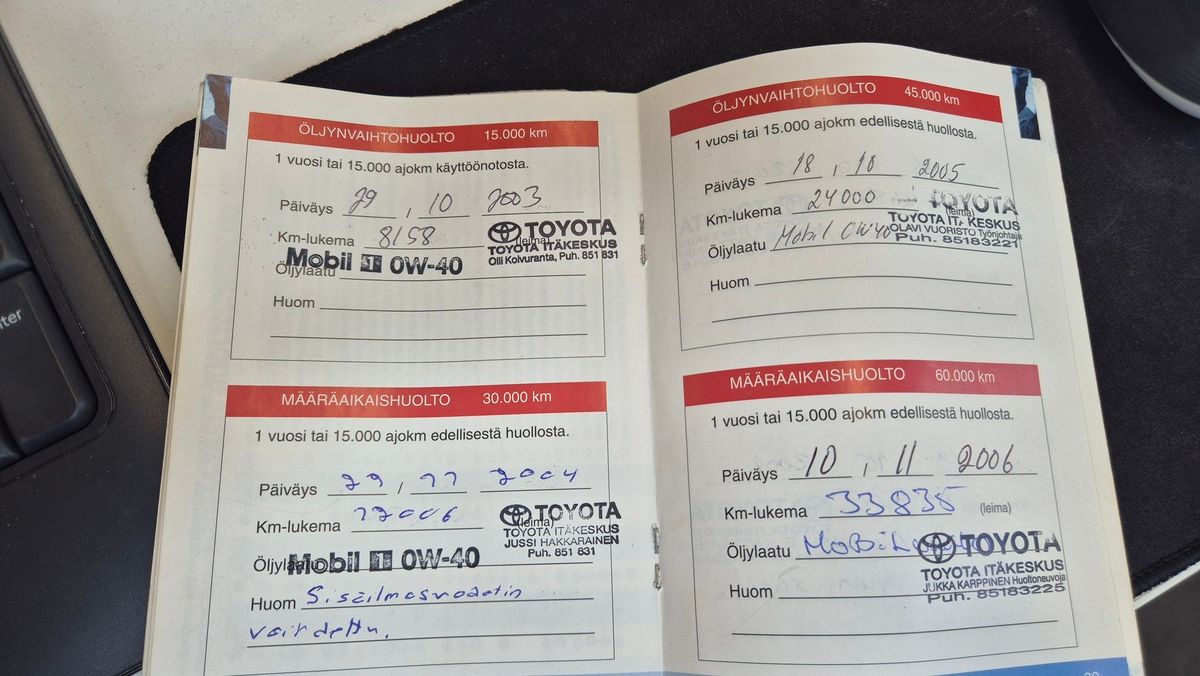 ÖLJYNVAIHTOHUOLTO 15.000 km
1 vuosi tai 15.000 ajokm käyttöönotosta.
Päiväys 29, 10 2003
Km-lukema 8158
TOYOTA
(leima)
TOYOTA ITÄKESKUS
Olli Koivuranta, Puh. 851 831
Öljylaatu Mobil 1 0W-40
Huom
MÄÄRÄAIKAISHUOLTO 30.000 km
1 vuosi tai 15.000 ajokm edellisestä huollosta.
Päiväys 29, 11 2004
Km-lukema 17006
TOYOTA
(leima)
TOYOTA ITÄKESKUS
JUSSI HAKKARAINEN
Puh. 851 831
Öljylaatu Mobil 1 0W-40
Huom Sisäilmasuodatin
vaihdettu.
ÖLJYNVAIHTOHUOLTO 45.000 km
1 vuosi tai 15.000 ajokm edellisestä huollosta.
Päiväys 18, 10 2005
Km-lukema 24000
TOYOTA
(leima)
TOYOTA ITÄKESKUS
OLAVI VUORISTO Työnjohtaja
Puh. 85183221
Öljylaatu Mobil 0W40
Huom
MÄÄRÄAIKAISHUOLTO 60.000 km
1 vuosi tai 15.000 ajokm edellisestä huollosta.
Päiväys 10, 11 2006
Km-lukema 33835
(leima)
Öljylaatu MoBiL
TOYOTA
TOYOTA ITÄKESKUS
JUKKA KARPPINEN Huoltoneuvoja
Puh. 85183225
Huom